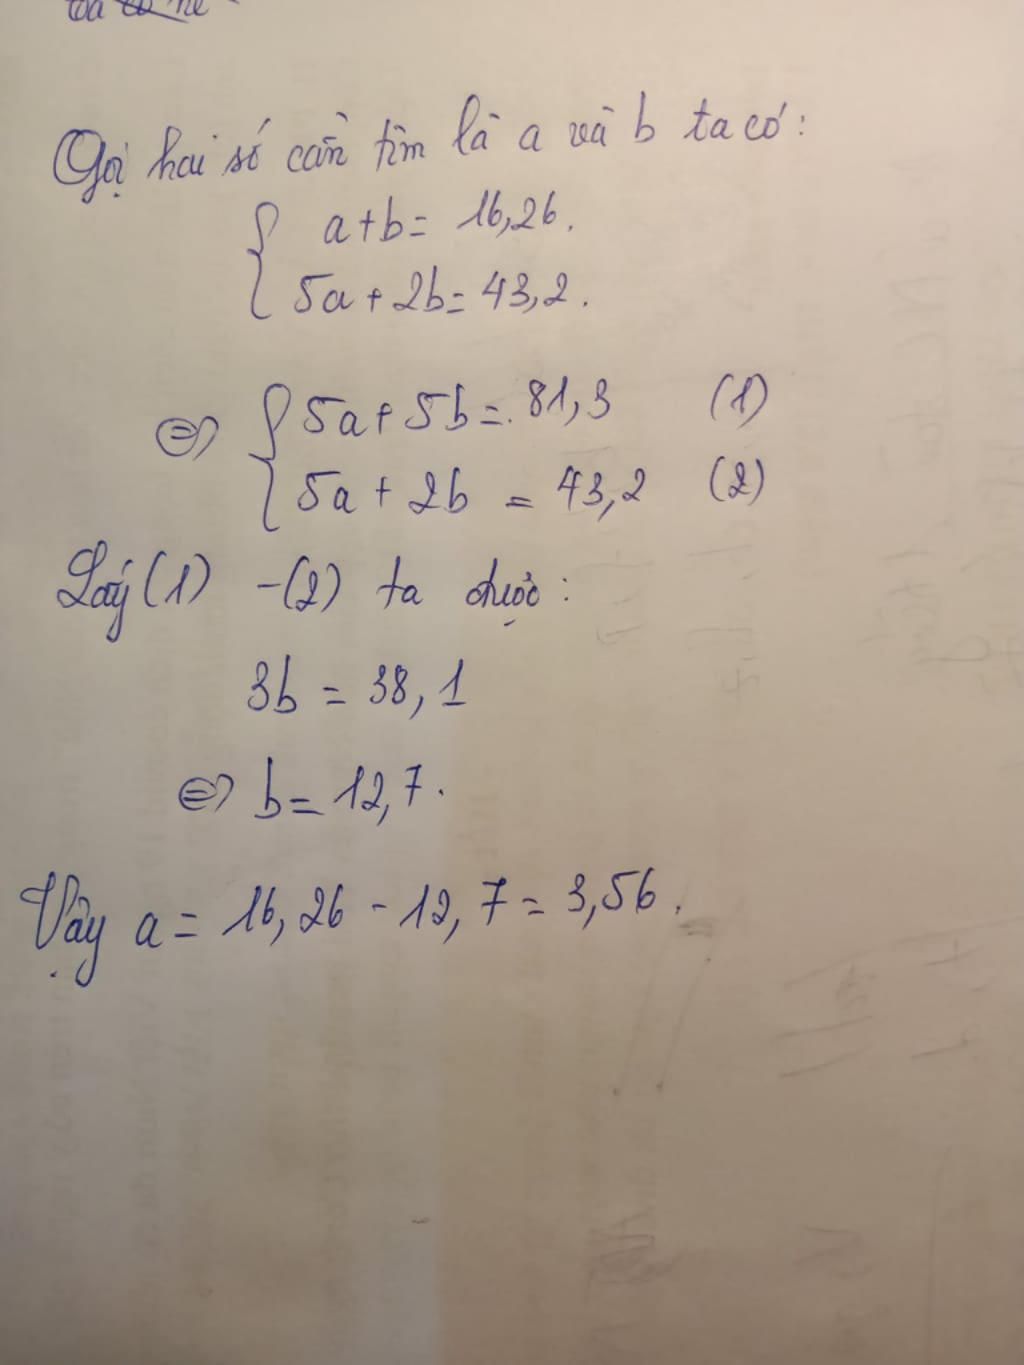 Gọi hai số cần tìm là a và b ta có:
a+b= 16,26.
5a+2b= 43,2.
⇔ 5a+5b= 81,3 (1)
5a+2b = 43,2 (2)
Lấy (1) -(2) ta được:
3b = 38,1
⇔ b= 12,7.
Vậy a= 16,26 - 12,7= 3,56.